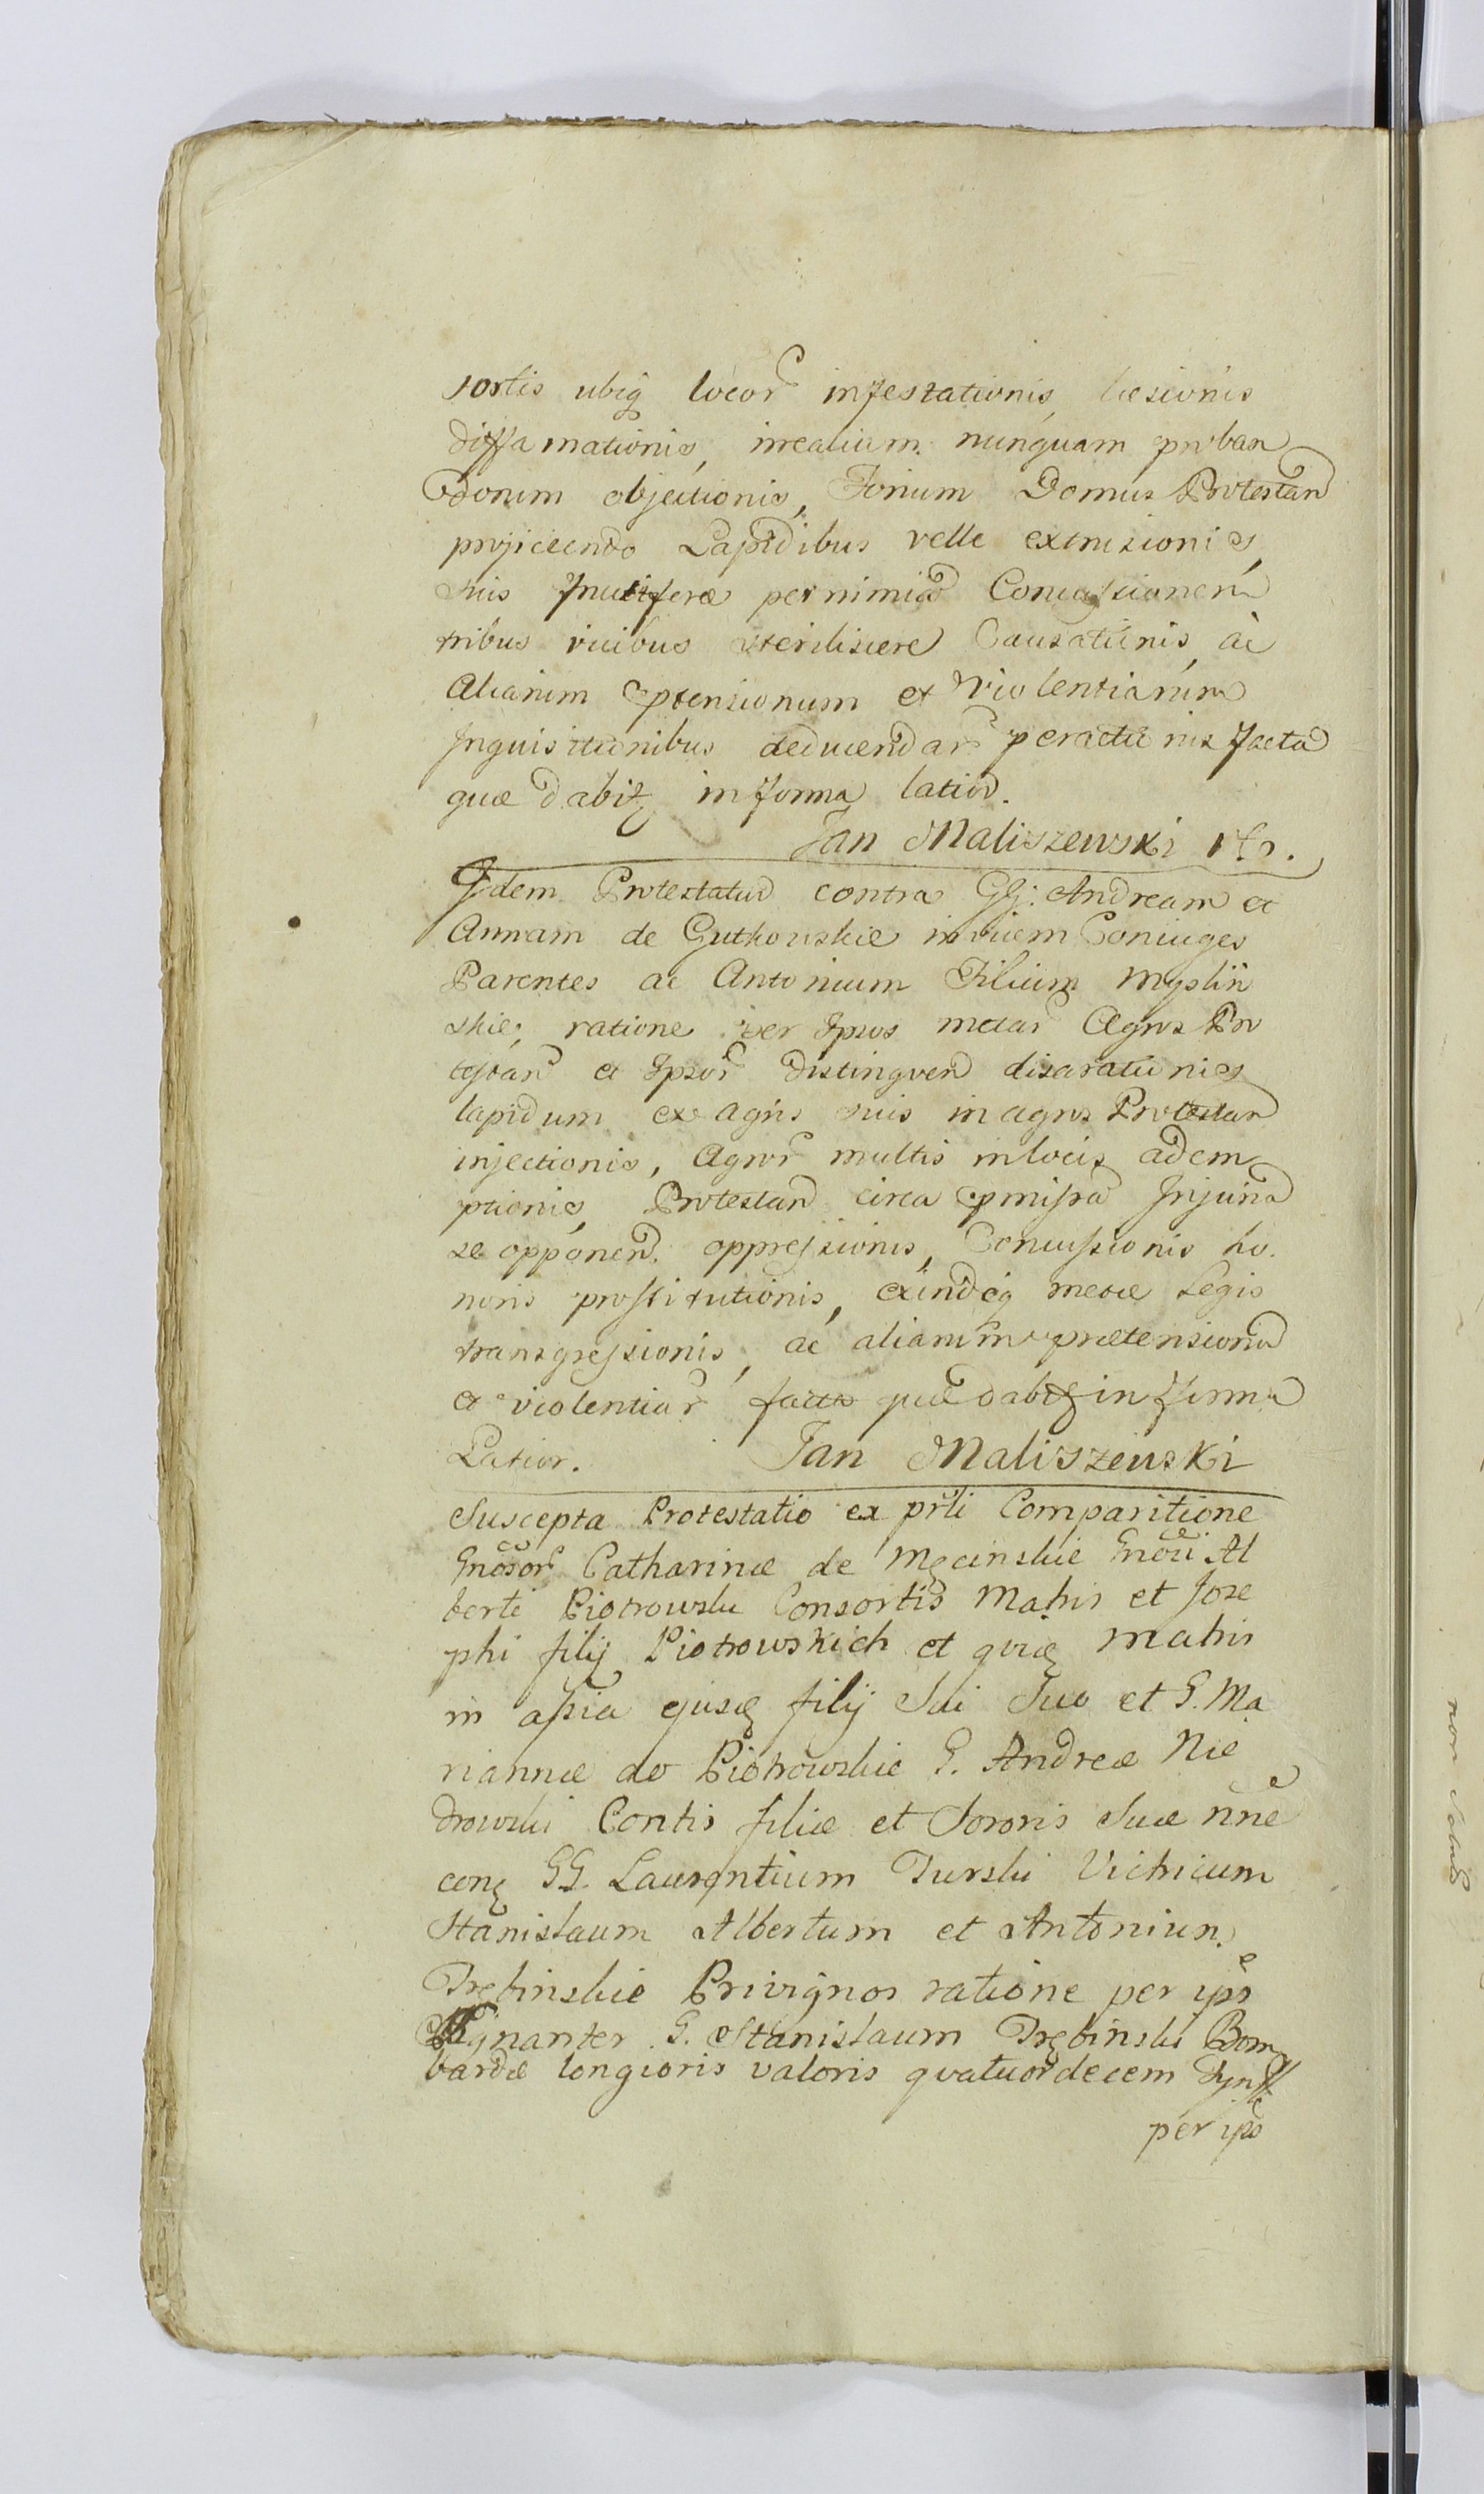 sortis ubiq locor infestationis, læsionis
diffamationis, irrealium nunquam proban
dorum objectionis, Forium Domus Protestan
projiciendo Lapidibus velle extrusionis,
suis fructiferæ per nimiã Concussionem
tribus vicibus sterilescere Causationis, ac
Aliarum prtensionum et Violentiarum
Inquisitionibus deducendar peractionis facta
quæ dabitq in forma latior.
Jan Maliszewski
Idem Protestatur contra GG: Andream et
Annam de Gutkowskie invicem Coniuges
Parentes ac Antonium Filium Myśliń
skie, ratione per Ipsos metar Agros Pro
testan et Ipsor distinguen disarationis,
lapidum ex agris suis in agros Protestan
injectionis, Agror multis in locis adem
ptionis, Protestan circa pmissa Injuria
se opponen. oppressionis, Concussionis ho.
noris prostitutionis, exindeq metæ Legis
transgressionis, ac aliarum prætensionũ
et violentiar facta quæ dabitq in forma
Latior. Jan Maliszewski
Suscepta Protestatio ex prsti Comparitione
Gnosor Catharinæ de Męcinskie Gnosi Al
berti Piotrowski Consortis Matris et Jose
phi filij Piotrowskich et quidẽ Matris
in assia ejusdẽ filij Sui Suo et G. Ma
riannæ de Piotrowskie G. Andreæ Nie
drowski Contis filiæ et Sororis Suæ nne
cong GG. Laurentium Turski Vitricum
Stanislaum Albertum et Antonium
Trębinskie Privignos ratione per ips
Signanter G. Stanislaum Trębinski Bom
bardæ longioris valoris quatuordecem Tynff
per ips